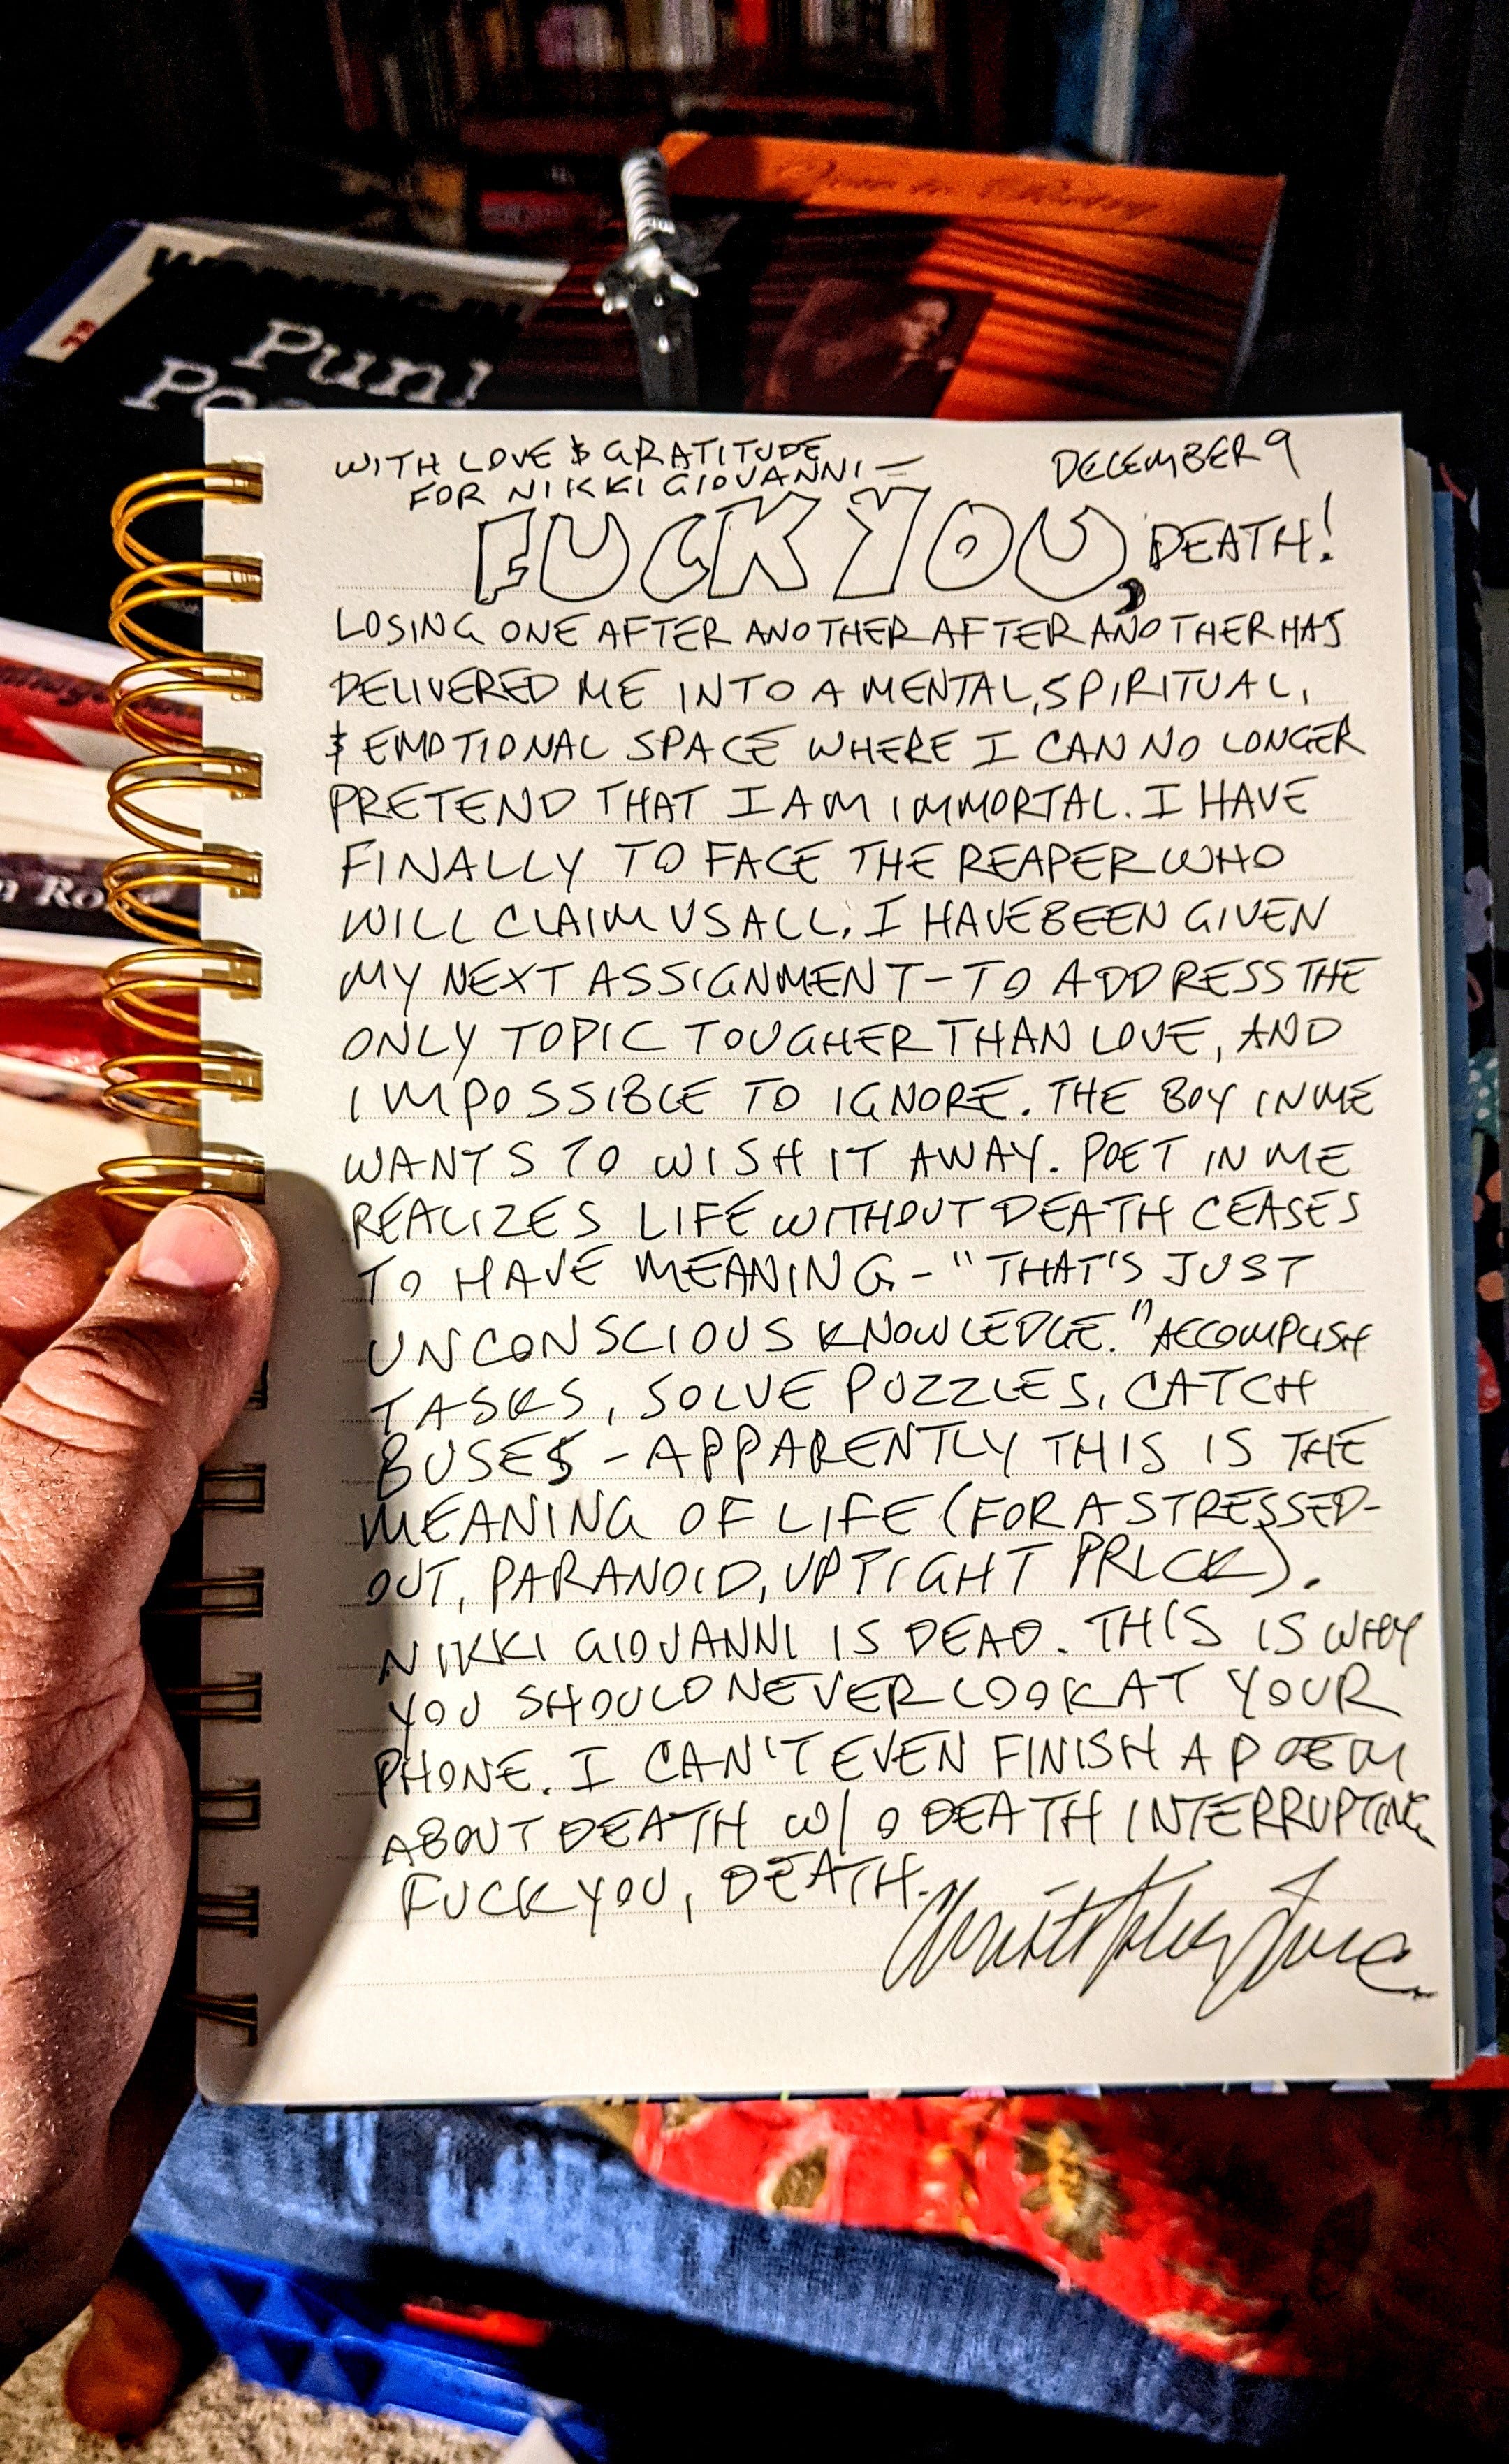 Punk
WITH LOVE & GRATITUDE
FOR NIKKI GIOVANNI —
DECEMBER 9
FUCK YOU, DEATH!
LOSING ONE AFTER ANOTHER AFTER ANOTHER HAS
DELIVERED ME INTO A MENTAL, SPIRITUAL,
& EMOTIONAL SPACE WHERE I CAN NO LONGER
PRETEND THAT I AM IMMORTAL. I HAVE
FINALLY TO FACE THE REAPER WHO
WILL CLAIM US ALL. I HAVE BEEN GIVEN
MY NEXT ASSIGNMENT – TO ADDRESS THE
ONLY TOPIC TOUGHER THAN LOVE, AND
IMPOSSIBLE TO IGNORE. THE BOY IN ME
WANTS TO WISH IT AWAY. POET IN ME
REALIZES LIFE WITHOUT DEATH CEASES
TO HAVE MEANING – "THAT'S JUST
UNCONSCIOUS KNOWLEDGE." ACCOMPLISH
TASKS, SOLVE PUZZLES, CATCH
BUSES – APPARENTLY THIS IS THE
MEANING OF LIFE (FOR A STRESSED-
OUT, PARANOID, UPTIGHT PRICK).
NIKKI GIOVANNI IS DEAD. THIS IS WHY
YOU SHOULD NEVER LOOK AT YOUR
PHONE. I CAN'T EVEN FINISH A POEM
ABOUT DEATH W/O DEATH INTERRUPTING.
FUCK YOU, DEATH.